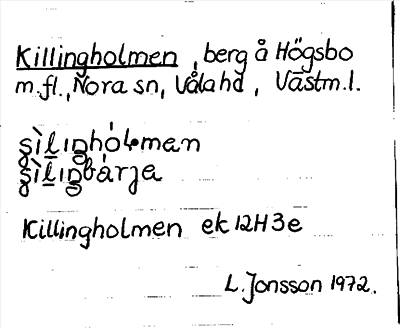 Killingholmen, berg å Högsbo
m.fl., Nora sn, Våla hd, Västm.l.
ʂìlɪŋhólman
ʂìlɪŋbárja
Killingholmen ek 12H3e
L. Jonsson 1972.